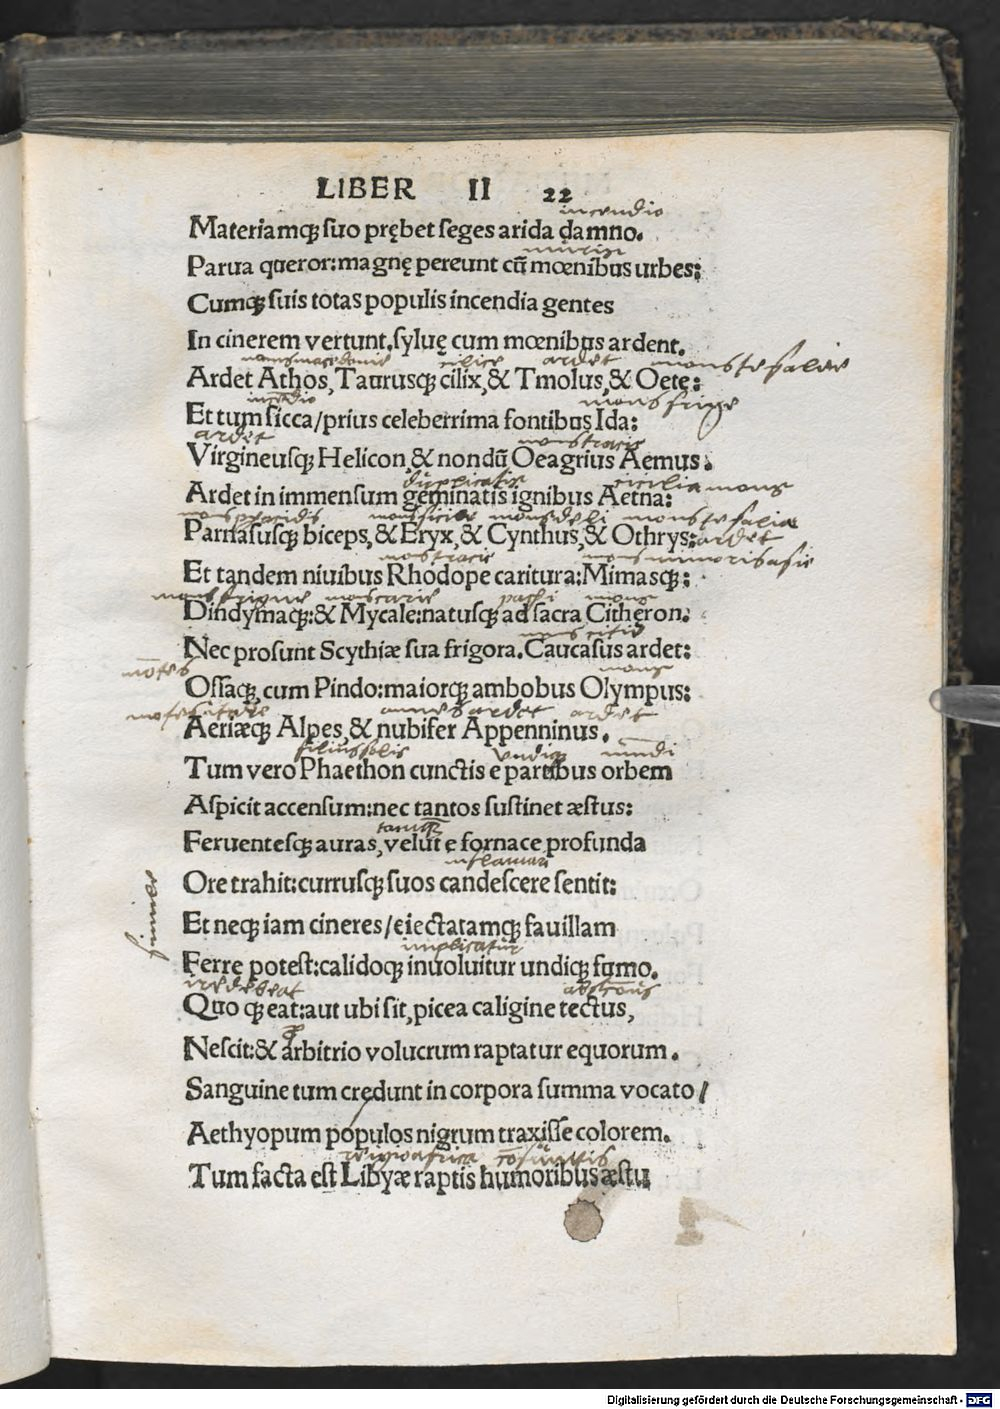 LIBER II 22
incendio
Materiamqꝫ suo prębet seges arida damno.
Parua queror: magnę pereunt cū mœnibus urbes:
Cumqꝫ suis totas populis incendia gentes
In cinerem vertunt. syluę cum mœnibus ardent.
ardet mons tesalie
Ardet Athos, Taurusqꝫ cilix, & Tmolus, & Oete:
mons frige
Et tum sicca/prius celeberrima fontibus Ida:
ardet mons tracie
Virgineusqꝫ Helicon & nondū Oeagrius Aemus.
duplicatis cicilia mons
Ardet in immensum geminatis ignibus Aetna:
mons phocidis mons sicilie mons deli mons tesalia
Parnasusqꝫ biceps, & Eryx, & Cynthus, & Othrys: ardet
mons tracie mons minoris asie
Et tandem niuibus Rhodope caritura: Mimasqꝫ:
mons frigie mons carie mons
Dindymaqꝫ: & Mycale: natusqꝫ ad sacra Citheron.
mons citie
Nec prosunt Scythiæ sua frigora. Caucasus ardet:
mōtes mons
Ossaqꝫ cum Pindo: maiorqꝫ ambobus Olympus:
ardet ardet
Aeriæqꝫ Alpes, & nubifer Appenninus.
filius solis undiqꝫ mundi
Tum vero Phaethon cunctis e partibus orbem
Aspicit accensum: nec tantos sustinet æstus:
tamqꝫ
Feruentesqꝫ auras, velut e fornace profunda
inflamari
Ore trahit: currusqꝫ suos candescere sentit:
Et neqꝫ iam cineres/eiectatamqꝫ fauillam
implicatur
Ferre potest: calidoqꝫ inuoluitur undiqꝫ fumo.
ire debeat
Quo qꝫ eat: aut ubi sit, picea caligine tectus,
Nescit: & arbitrio volucrum raptatur equorum.
Sanguine tum credunt in corpora summa vocato/
Aethyopum populos nigrum traxisse colorem.
regio africa
Tum facta est Libyæ raptis humoribus æstu
Digitalisierung gefördert durch die Deutsche Forschungsgemeinschaft - DFG